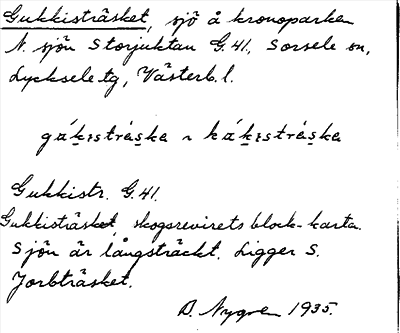 Gukkisträsket, sjö å kronoparken
N. sjön Storjuktan G.41, Sorsele sn,
Lycksele tg, Västerb. l.
gák̠ɪstrás̠ka ~ kák̠ɪstrás̠ka
Gukkistr. G.41.
Gukkisträsket, skogsrevirets block-karta.
Sjön är långsträckt. Ligger S.
Jorbträsket.
D. Nygren 1935.